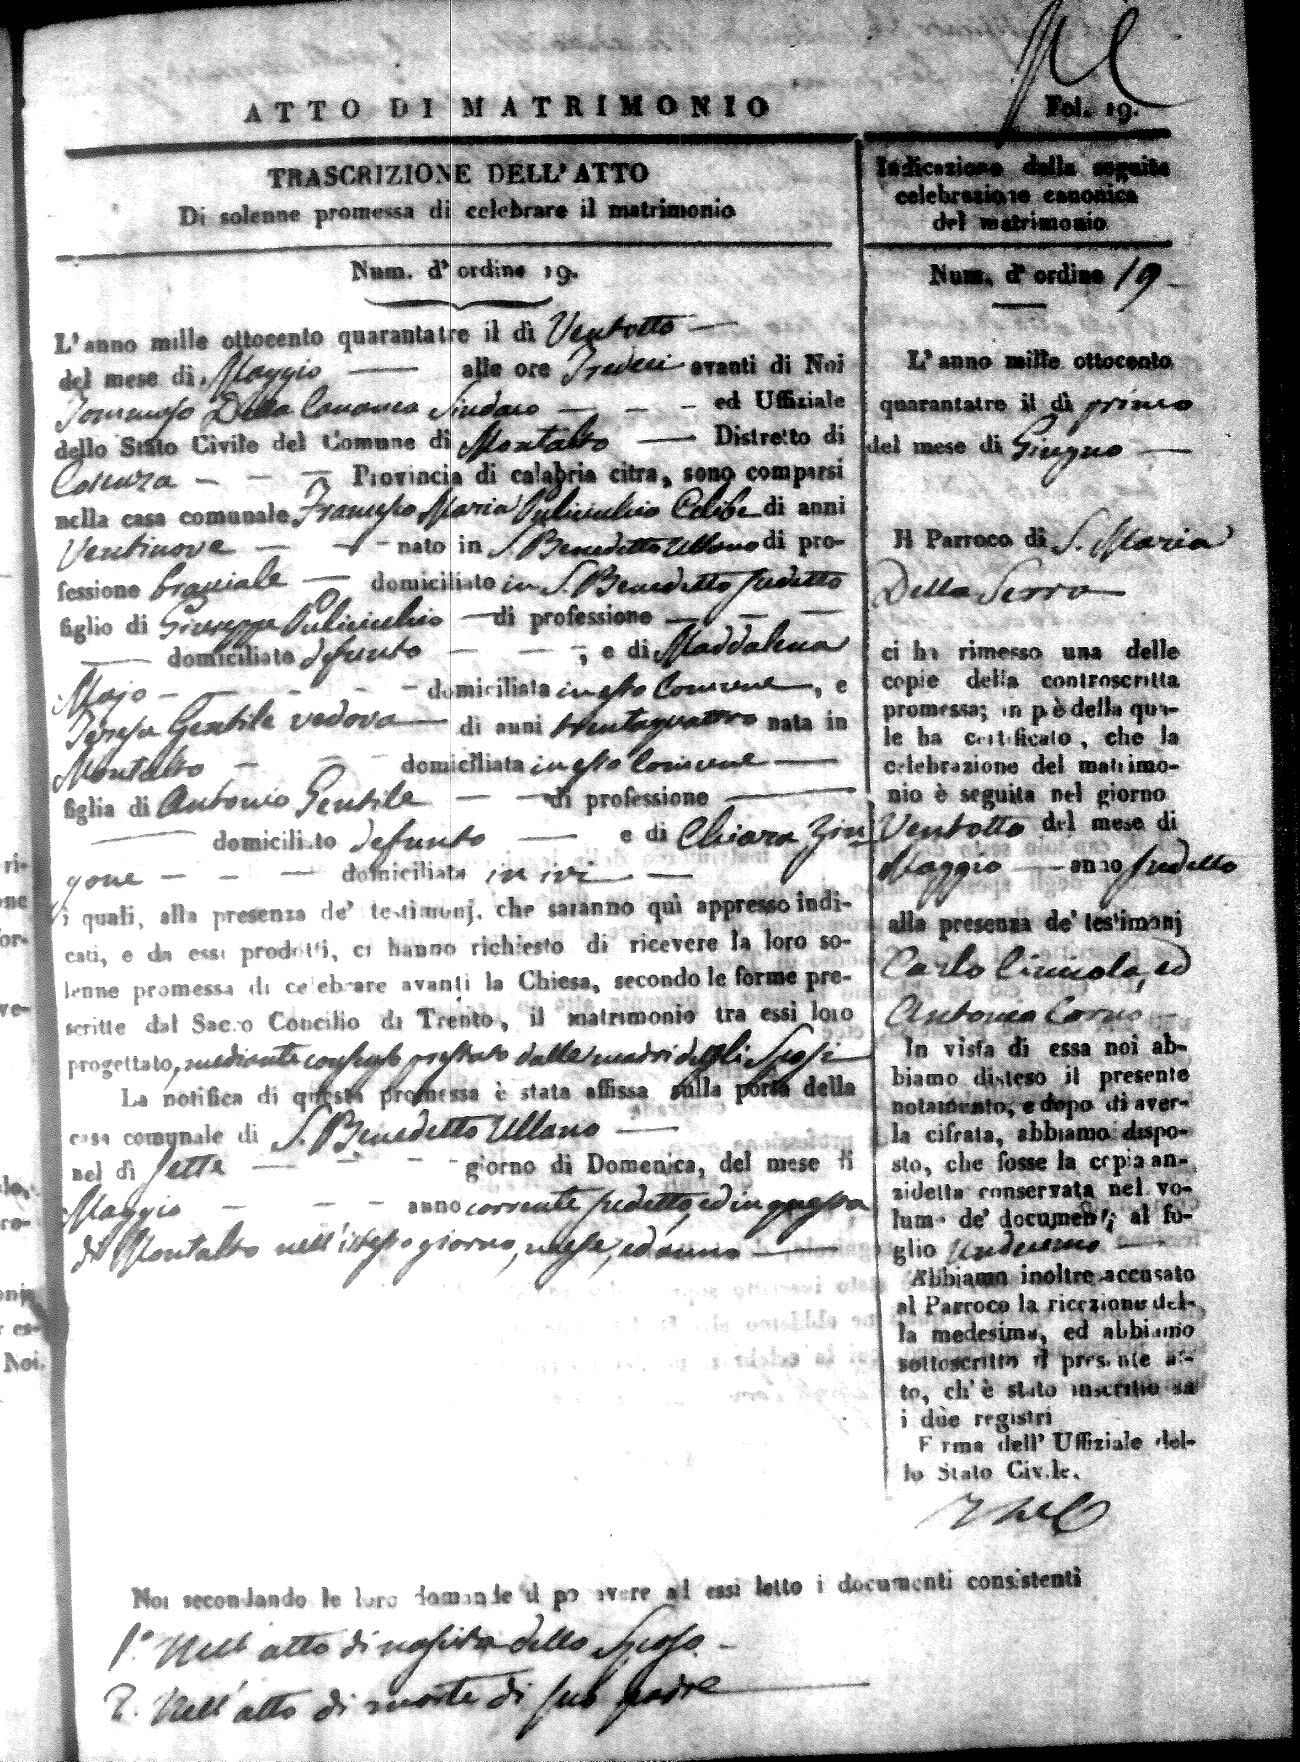 ATTO DI MATRIMONIO
Fol. 19.
TRASCRIZIONE DELL'ATTO
Di solenne promessa di celebrare il matrimonio
Num. d'ordine 19.
L'anno mille ottocento quarantatre il dì Ventotto
del mese di Maggio alle ore Tredici avanti di Noi
Tommaso Della Cananea Sindaco ed Uffiziale
dello Stato Civile del Comune di Montalto Distretto di
Cosenza Provincia di calabria citra, sono comparsi
nella casa comunale Francesco Maria Pulicicchio Celibe di anni
Ventinove nato in S. Benedetto Ullano di pro-
fessione braciale domiciliato in S. Benedetto predetto
figlio di Giuseppe Pulicicchio di professione
domiciliato defunto , e di Maddalena
Majo domiciliata in esto Comune, e
Teresa Gentile vedova di anni trentaquattro nata in
Montalto domiciliata in esto Comune
figlia di Antonio Gentile di professione
domiciliato defunto e di Chiara Zin
gone domiciliata in ivi
i quali, alla presenza de' testimonj, che saranno quì appresso indi-
cati, e da essi prodotti, ci hanno richiesto di ricevere la loro so-
lenne promessa di celebrare avanti la Chiesa, secondo le forme pre-
scritte dal Sacro Concilio di Trento, il matrimonio tra essi loro
progettato, mediante consenso prestato dalle madri degli Sposi
La notifica di questa promessa è stata affissa sulla porta della
casa comunale di S. Benedetto Ullano
nel dì Sette giorno di Domenica, del mese di
Maggio anno corrente predetto, ed in questa
di Montalto nell'istesso giorno, mese, ed anno
Indicazione della seguita
celebrazione canonica
del matrimonio
Num. d'ordine 19
L'anno mille ottocento
quarantatre il dì primo
del mese di Giugno
Il Parroco di S. Maria
Della Serra
ci ha rimesso una delle
copie della controscritta
promessa; in piè della qua-
le ha certificato, che la
celebrazione del matrimo-
nio è seguita nel giorno
Ventotto del mese di
Maggio anno predetto
alla presenza de' testimonj
Carlo, ed
Antonio
In vista di essa noi ab-
biamo disteso il presente
notamento, e dopo di aver-
la cifrata, abbiamo dispo-
sto, che fosse la copia an-
zidetta conservata nel vo-
lume de' documenti al fo-
glio
Abbiamo inoltre accusato
al Parroco la ricezione del-
la medesima, ed abbiamo
sottoscritto il presente at-
to, ch'è stato inscritto su
i due registri
Firma dell' Uffiziale del-
lo Stato Civile.
Noi secondando le loro domande d po avere ad essi letto i documenti consistenti
1.° Nell'atto di nascita dello Sposo
2. Nell'atto di morte di suo padre